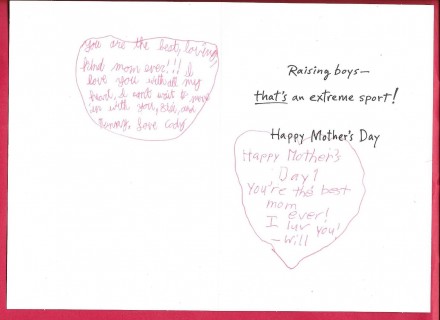 You are the best, loving,
kind mom ever!!! I
love you with all my
heart, I can't wait to
up with you,
love Cody
Raising boys—
that's an extreme sport!
Happy Mother's Day
Happy Mother's
Day!
You're the best
mom
ever!
I luv you!
-Will